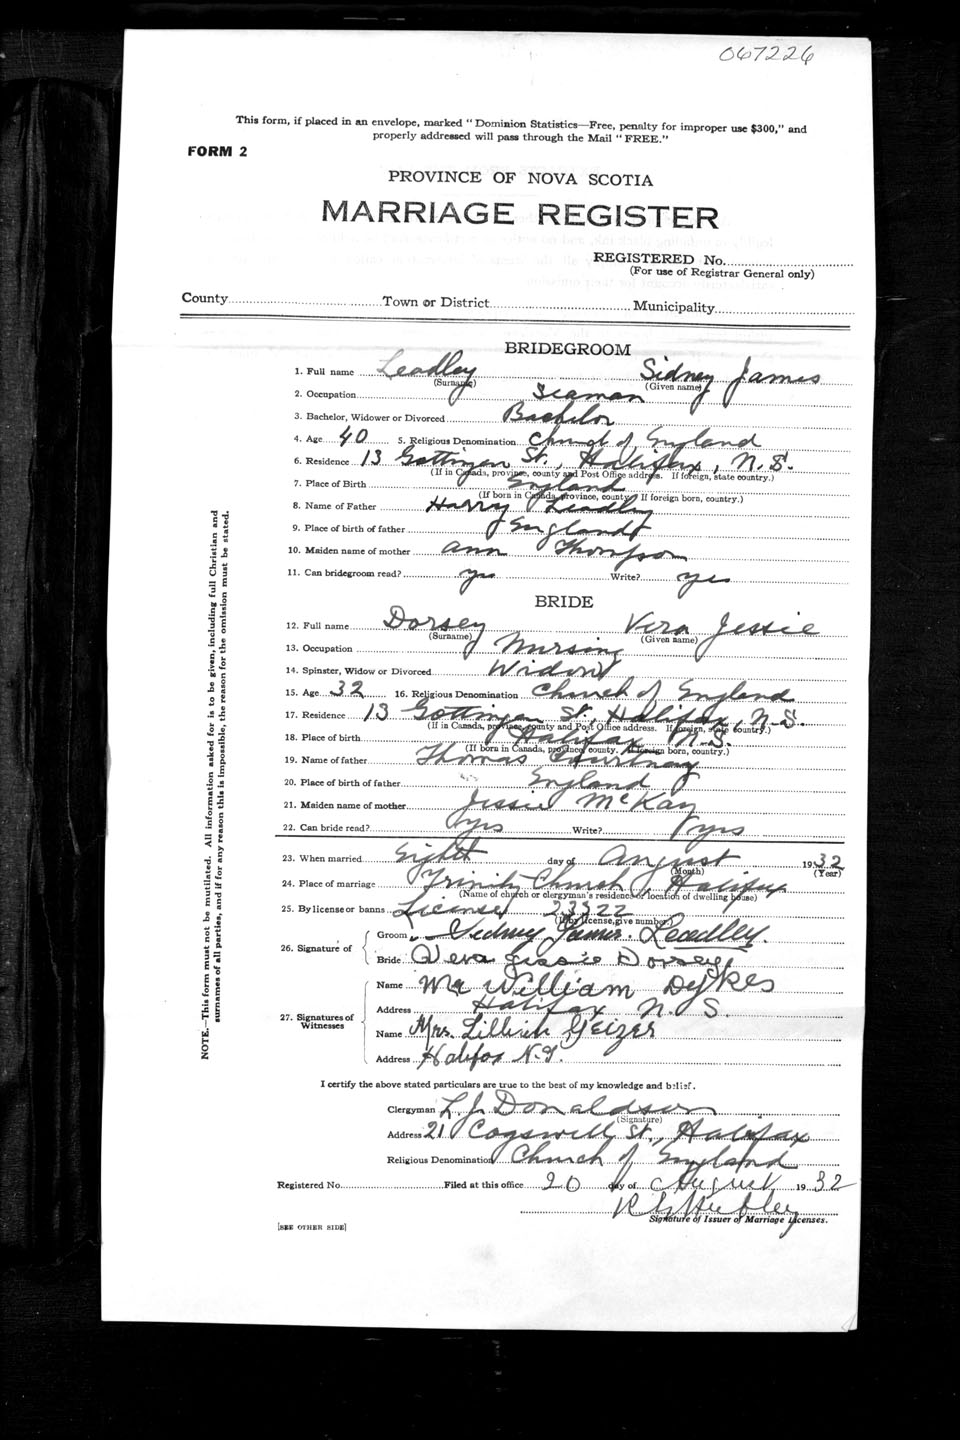 067226
This form, if placed in an envelope, marked "Dominion Statistics—Free, penalty for improper use $300," and
properly addressed will pass through the Mail "FREE."
FORM 2
PROVINCE OF NOVA SCOTIA
MARRIAGE REGISTER
REGISTERED No.
(For use of Registrar General only)
County Town or District Municipality
BRIDEGROOM
1. Full name Leadley Sidney James
(Surname) (Given name)
2. Occupation Seaman
3. Bachelor, Widower or Divorced Bachelor
4. Age 40 5. Religious Denomination Church of England
6. Residence 13 Gottingen St., Halifax, N.S.
(If in Canada, province, county and Post Office address. If foreign, state country.)
7. Place of Birth England
(If born in Canada, province, county. If foreign born, country.)
8. Name of Father Harry Leadley
9. Place of birth of father England
10. Maiden name of mother Ann Thompson
11. Can bridegroom read? yes Write? yes
BRIDE
12. Full name Dorsey Vera Jessie
(Surname) (Given name)
13. Occupation Nursing
14. Spinster, Widow or Divorced Widow
15. Age 32 16. Religious Denomination Church of England
17. Residence 13 Gottingen St., Halifax, N.S.
(If in Canada, province, county and Post Office address. If foreign, state country.)
18. Place of birth Halifax N.S.
(If born in Canada, province, county. If foreign born, country.)
19. Name of father Thomas Courtnay
20. Place of birth of father England
21. Maiden name of mother Jessie McKay
22. Can bride read? yes Write? yes
23. When married Eight day of August 1932
(Month) (Year)
24. Place of marriage Trinity Church, Halifax
(Name of church or clergyman's residence or location of dwelling house)
25. By license or banns License 23322
(If by license, give number)
26. Signature of Groom Sidney James Leadley.
Bride Vera Jessie Dorsey
27. Signatures of Witnesses Name Mr William Dykes
Address Halifax N.S.
Name Mrs. Lillian Geizer
Address Halifax N.S.
I certify the above stated particulars are true to the best of my knowledge and belief.
Clergyman L. J. Donaldson
(Signature)
Address 21 Cogswell St., Halifax
Religious Denomination Church of England
Registered No. Filed at this office 20 day of August 1932
Hubley
Signature of Issuer of Marriage Licenses.
[SEE OTHER SIDE]
NOTE.—This form must not be mutilated. All information asked for is to be given, including full Christian and
surnames of all parties, and if for any reason this is impossible, the reason for the omission must be stated.